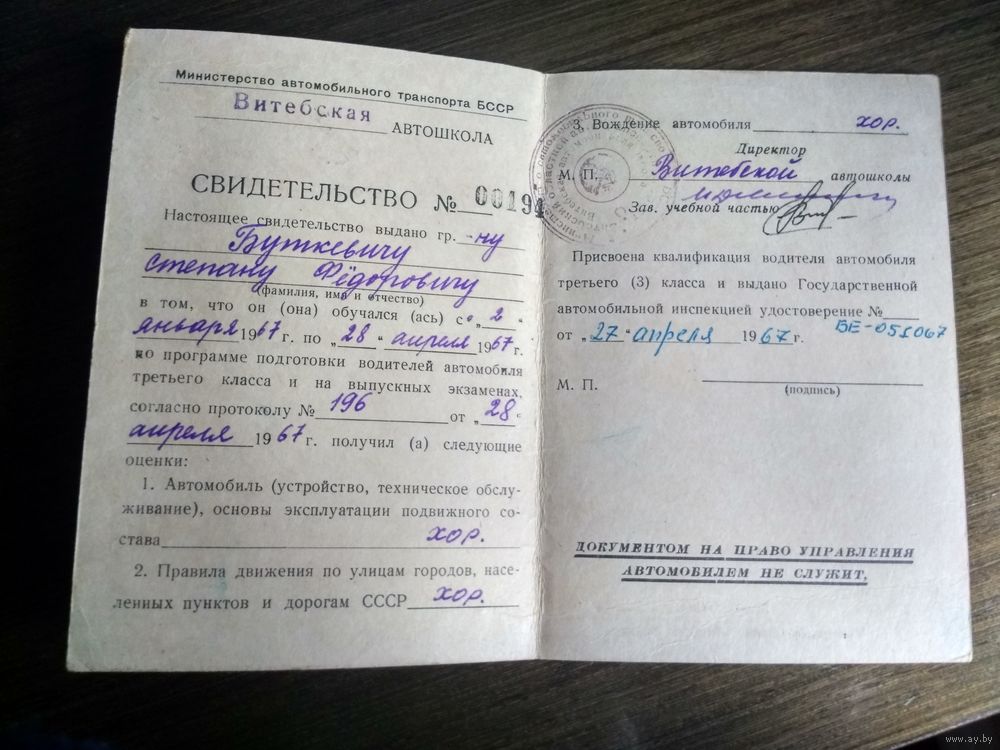 Министерство автомобильного транспорта БССР
Витебская
АВТОШКОЛА
СВИДЕТЕЛЬСТВО № 00194
Настоящее свидетельство выдано гр. -ну
Буткевичу
Степану Фёдоровичу
(фамилия, имя и отчество)
в том, что он (она) обучался (ась) с „2“
января 1967 г. по „28“ апреля 1967 г.
по программе подготовки водителей автомобиля
третьего класса и на выпускных экзаменах,
согласно протоколу № 196 от „28“
апреля 1967 г. получил (а) следующие
оценки:
1. Автомобиль (устройство, техническое обслу-
живание), основы эксплуатации подвижного со-
става хор.
2. Правила движения по улицам городов, насе-
ленных пунктов и дорогам СССР хор.
3. Вождение автомобиля хор.
Директор
М. П. Витебской автошколы
Зав. учебной частью
Присвоена квалификация водителя автомобиля
третьего (3) класса и выдано Государственной
автомобильной инспекцией удостоверение №
ВЕ-051067
от „27“ апреля 1967 г.
М. П.
(подпись)
ДОКУМЕНТОМ НА ПРАВО УПРАВЛЕНИЯ
АВТОМОБИЛЕМ НЕ СЛУЖИТ.
www.ay.by